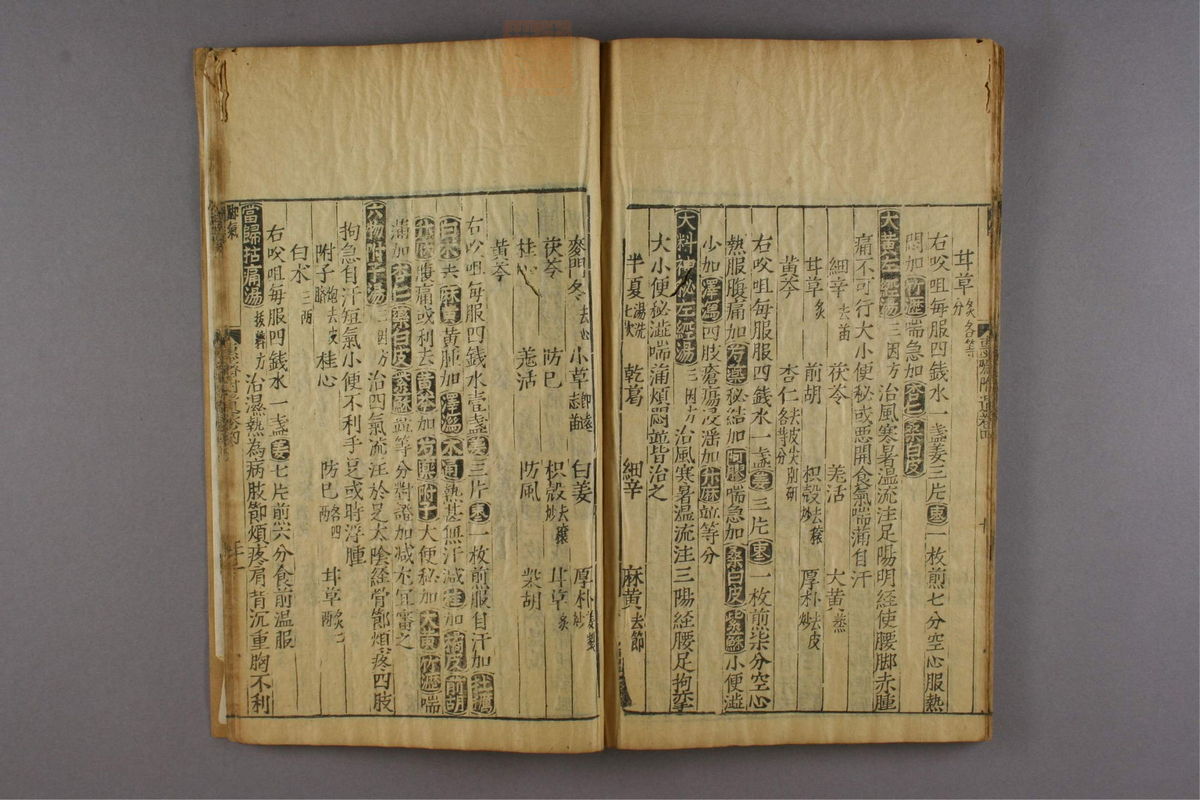 甘草炙各等分
右㕮咀每服四錢水一盞姜三片棗一枚煎七分空心服熱
悶加竹瀝喘急加杏仁桑白皮
大黃左經湯三因方治風寒暑濕流注足陽明經使腰脚赤腫
痛不可行大小便秘或惡聞食氣喘滿自汗
細辛去苗 茯苓 羌活 大黃蒸
甘草炙 前胡 枳殼去穰炒 厚朴去皮炒
黃芩 杏仁去皮尖別研各等分
右㕮咀每服四錢水一盞姜三片棗一枚煎柒分空心
熱服腹痛加芍藥秘結加阿膠喘急加桑白皮紫蘇小便澁
少加澤瀉四肢瘡瘍浸滛加升麻並等分
大料神秘左經湯三因方治風寒暑溫流注三陽経腰足拘攣
大小便秘澁喘蒲煩悶並皆治之
半夏湯洗七次 乾葛 細辛 麻黃去節
麥門冬去心 小草即遠志苗 白姜 厚朴姜製炒
茯苓 防巳 枳殼去穰炒 甘草炙
桂心 羗活 防風 柴胡
黃芩
右㕮咀每服四錢水壹盞姜三片棗一枚煎服自汗加牡礪
白朮去麻黃黃腫加澤瀉木通熱甚無汗減桂加橘皮前胡
升麻腹痛或利去黃芩加芍藥附子大便秘加大黃竹瀝喘
蒲加杏仁桑白皮紫蘇並等分對證加减在宜審之
六物附子湯三因方治四氣流注於足太陰経骨節煩疼四肢
拘急自汗短氣小便不利手足或時浮腫
附子炮去皮臍 桂心 防巳各四兩 甘草炙二兩
白朮三兩
右㕮咀每服四錢水一盞姜七片煎六分食前温服
當歸拈痛湯拔萃方治濕熱為病肢節煩疼肩背沉重胸不利
脚氣